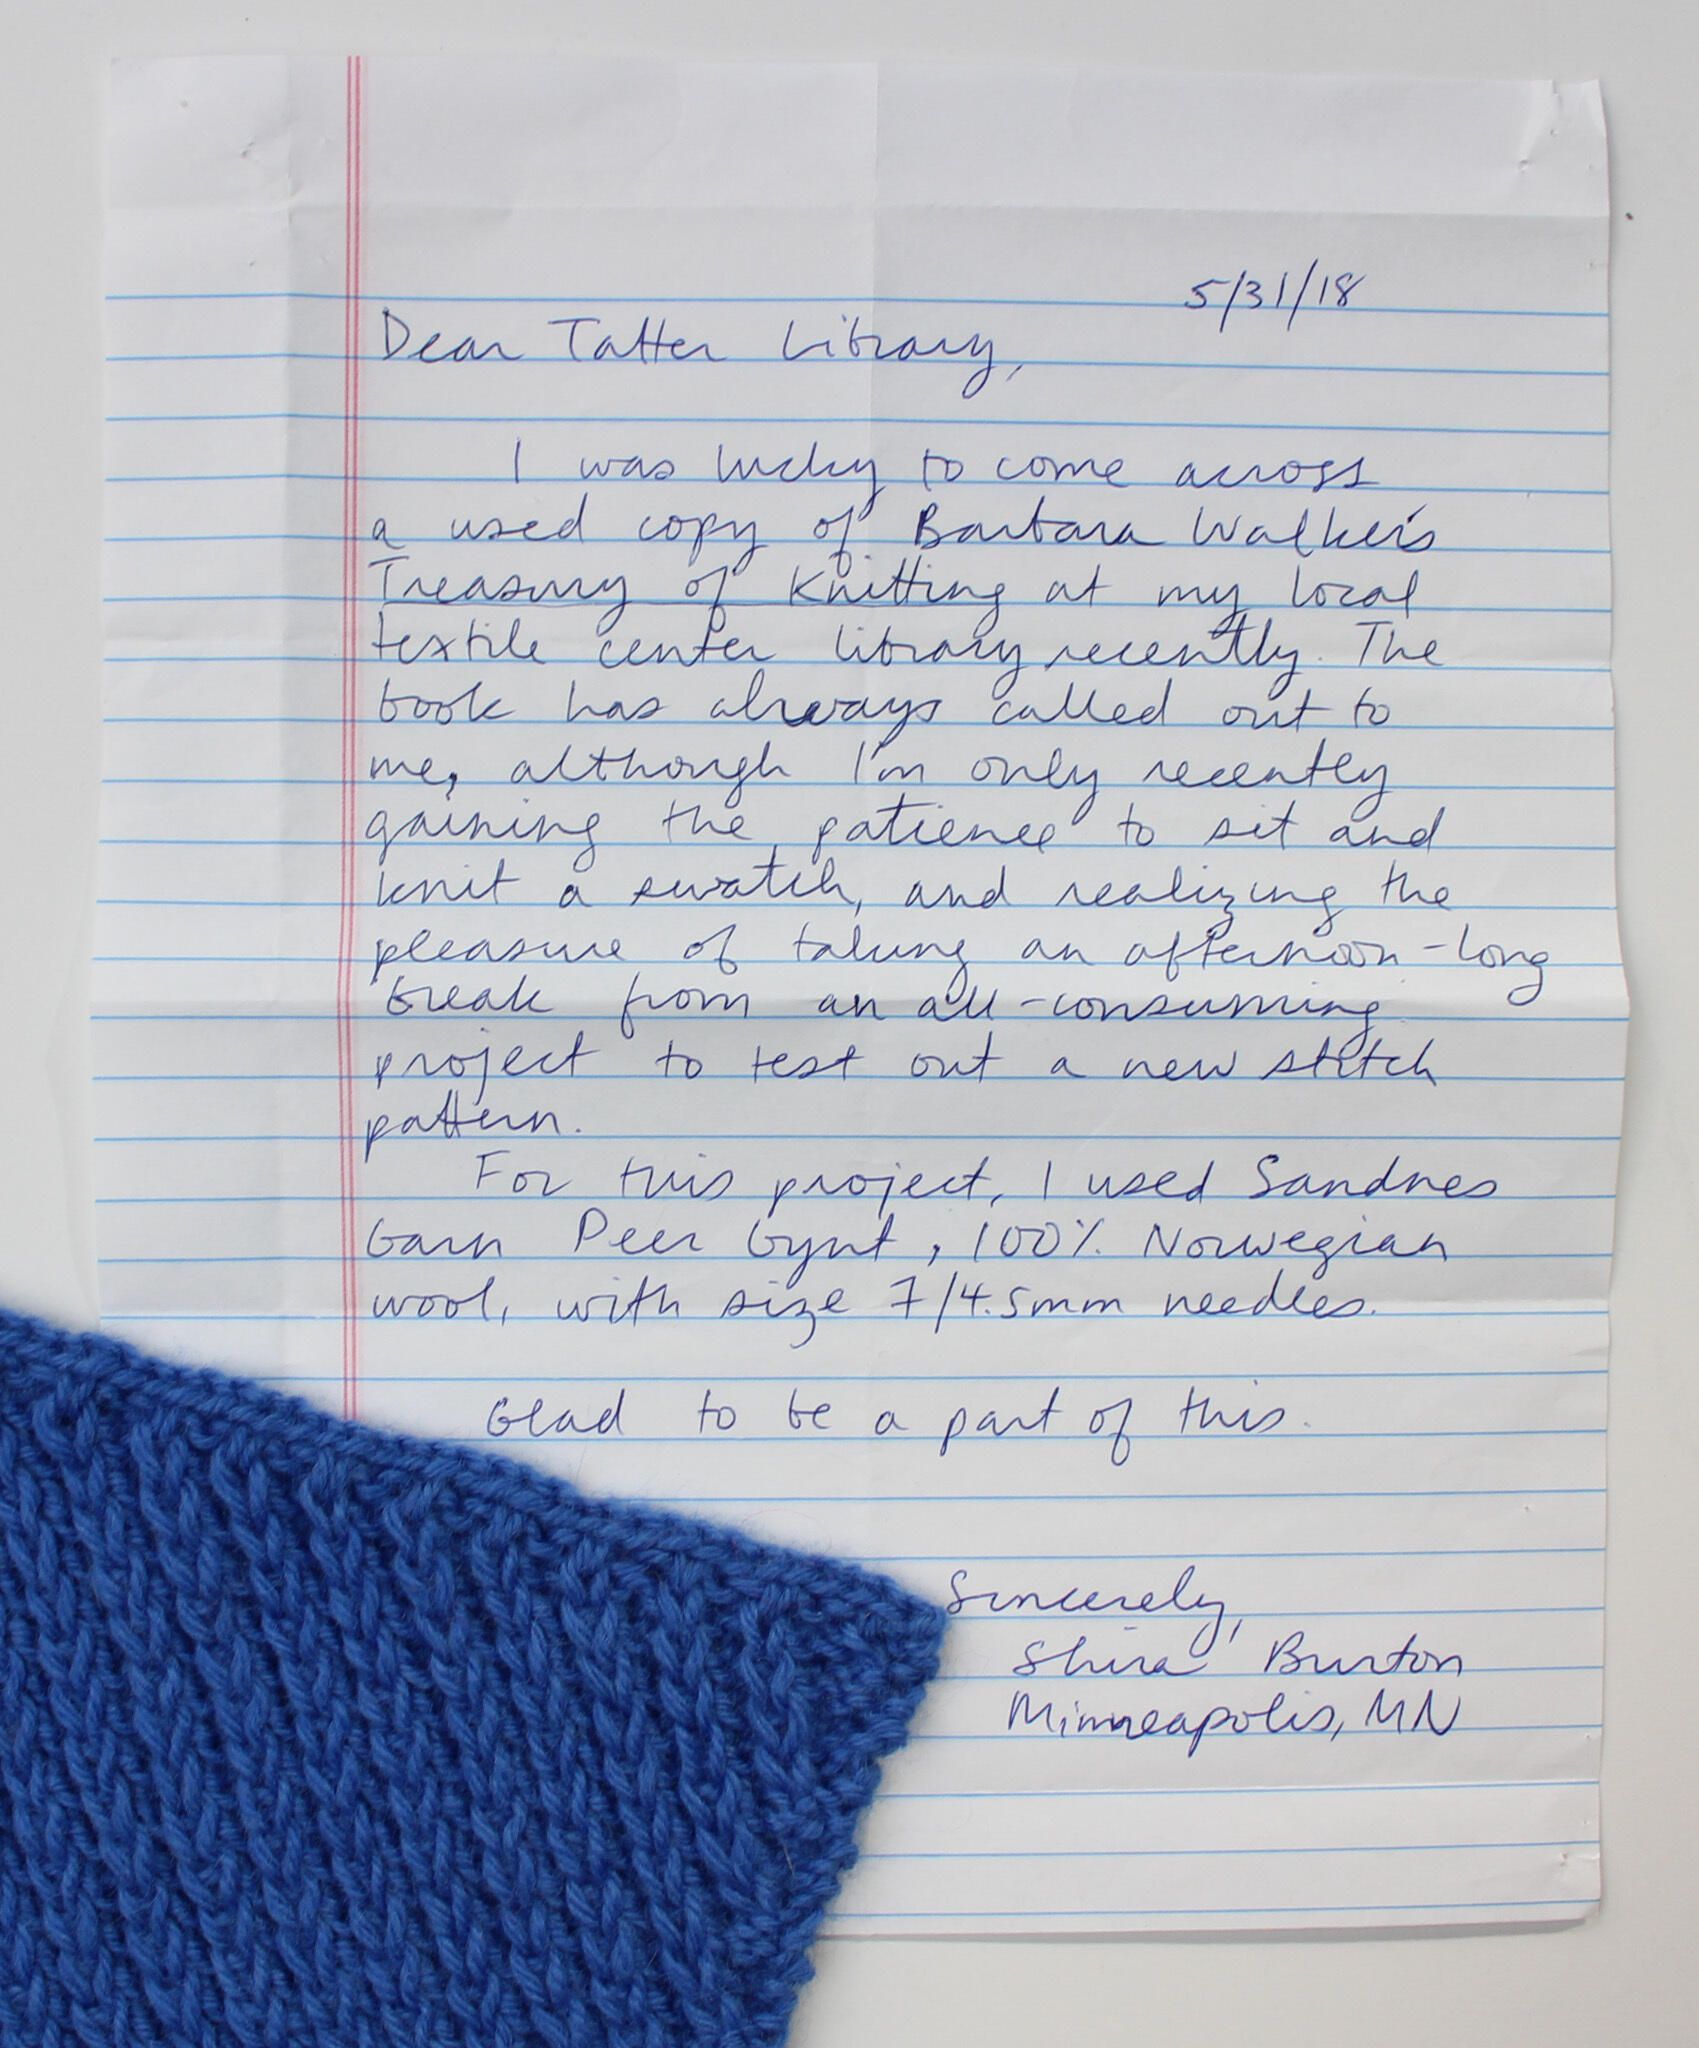 5/31/18
Dear Tatter Library,
I was lucky to come across
a used copy of Barbara Walker's
Treasury of Knitting at my local
textile center library recently. The
book has always called out to
me, although I'm only recently
gaining the patience to sit and
knit a swatch, and realizing the
pleasure of taking an afternoon-long
break from an all-consuming
project to test out a new stitch
pattern.
For this project, I used Sandnes
Garn Peer Gynt, 100% Norwegian
wool, with size 7/4.5mm needles.
Glad to be a part of this.
Sincerely,
Shira Burton
Minneapolis, MN